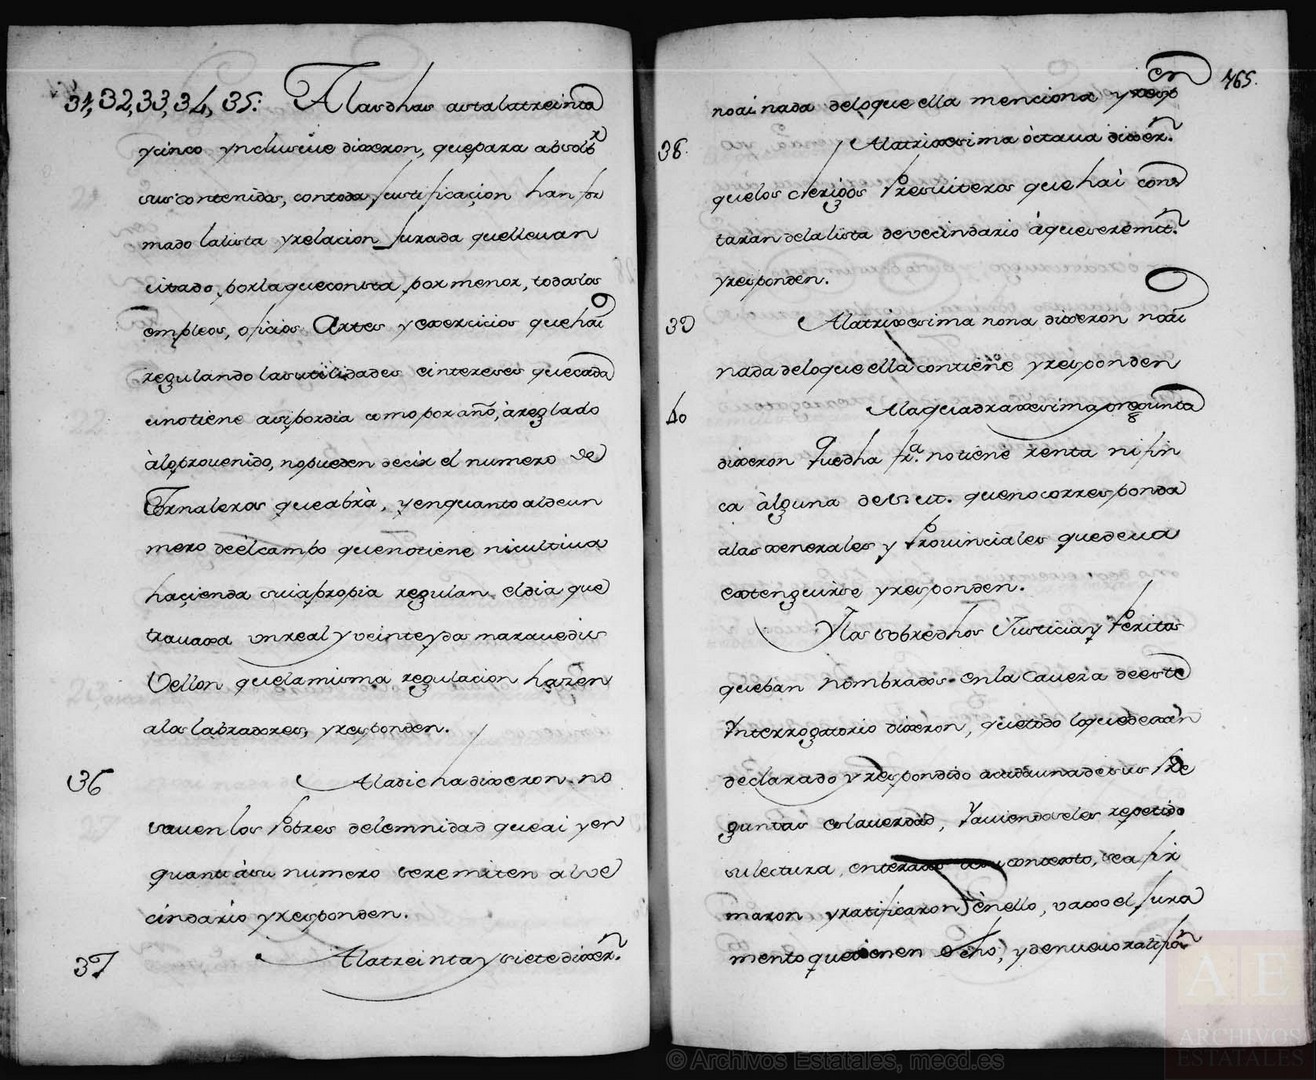 31, 32, 33, 34, 35: A las dhas asta la treinta
y cinco ynclusiue dixeron, que para absolbr
sus contenidos, con toda justificaçion han for
mado la lista y relacion Jurada que lleuan
citado, por la que consta, por menor, todas las
empleos, oficios, Artes y exercicios que hai
regulando las utilidades e intereses que cada
uno tiene asi por dia como por año, àreglado
à lo preuenido, no pueden decir el numero de
Jornaleros que abrà, y en quanto al de un
mero de el campo que no tiene ni cultiua
haçienda suia propia regulan el dia que
trauaxa un real y veinte y dos marauedis
Vellon que la misma regulacion hazen
a los labradores, y responden.
36 A la dicha dixeron no
sauen los Pobres de lemnidad que ai y en
quantt à su numero se remiten al ve
cindario y responden.
37 A la treinta y siete dixer.n
765.
no ai nada de lo que ella menciona y resp
en
38. A la trixesima òctaua dixer.n
que los clerigos Presuiteros que hai cons
taran de la lista de vecindario à que se remit.n
y responden.
39 A la trixesima nona dixeron no ai
nada de lo que ella contiene y responden
40 A la quadraxesima pregunta
dixeron que dha Va. no tiene renta ni fin
ca àlguna de S. M. que no corresponda
a las generales y Prouinciales que deua
extenguirse y responden.
Y los sobredhos Justicia y Peritos
que ban nombrados en la Caueza de este
Ynterrogatorio dixeron, que todo lo que dexan
declarado y respondido a cada una de sus Pre
guntas es la uerdad, y auiendoseles repetido
su lectura, enterados de su contexto, se afir
maron y ratificaron en ello, vaxo el Jura
mento que tienen echo, y de nueuo ratifican
AE
ARCHIVOS
ESTATALES
© Archivos Estatales, mecd.es